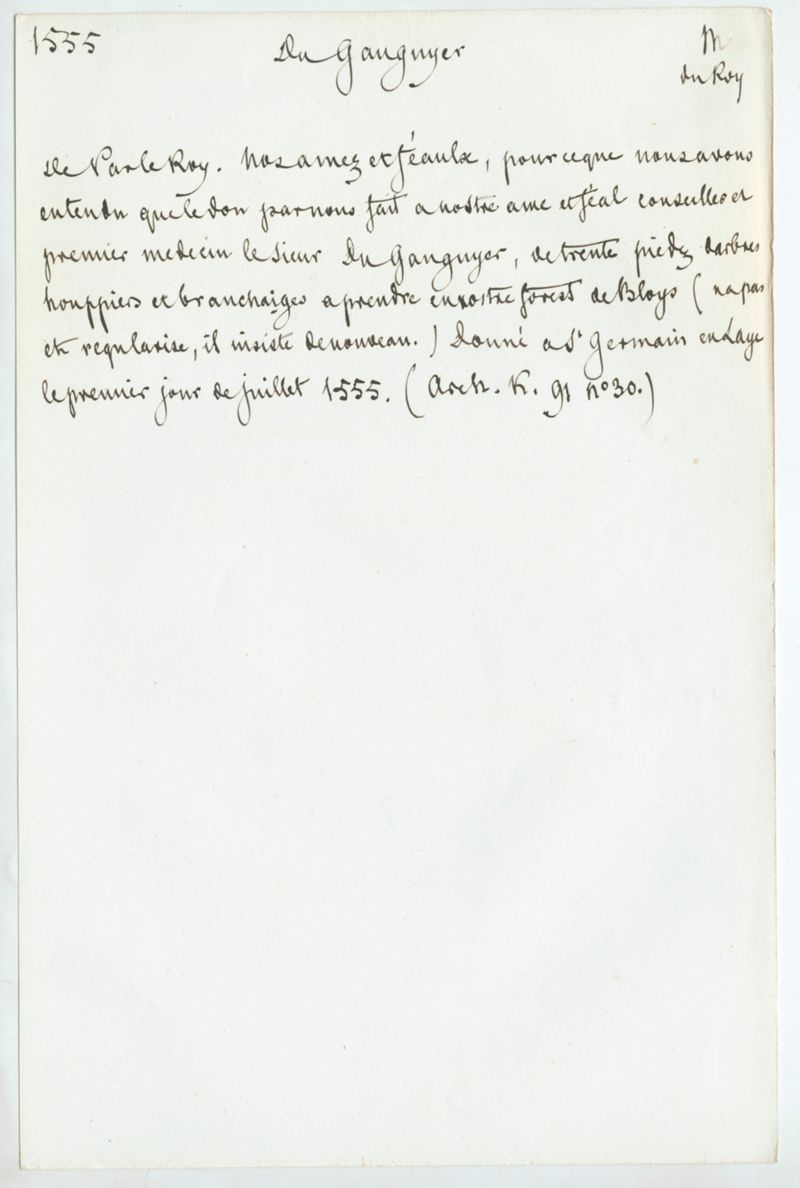 1555 Du Gauguyer M
du Roy
De Par le Roy. Nos amez et féaulx, pour ce que nous avons
entendu que le don par nous fait a nostre ame et féal conseiller et
premier medecin le Sieur Du Gauguyer, de trente piedz darbres
houppiers et branchaiges a prendre en nostre forest de Bloys (na pas
ete regularise, il insiste de nouveau.) Donné a St Germain en Laye
le premier jour de juillet 1555. (Arch. K. 91 no 30.)